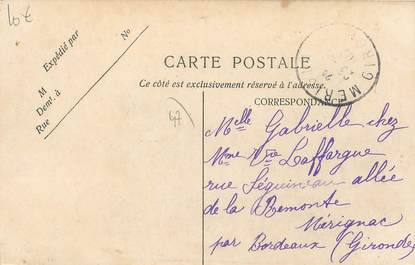 10€
Expédié par
No
M
Demt. à
Rue
CARTE POSTALE
Ce côté est exclusivement réservé à l'adresse
CORRESPONDANCE
MERIG
47
Melle Gabrielle chez
Mme Vve Laffargue
rue Séguineau allée
de la Remonte
Mérignac
par Bordeaux (Gironde)